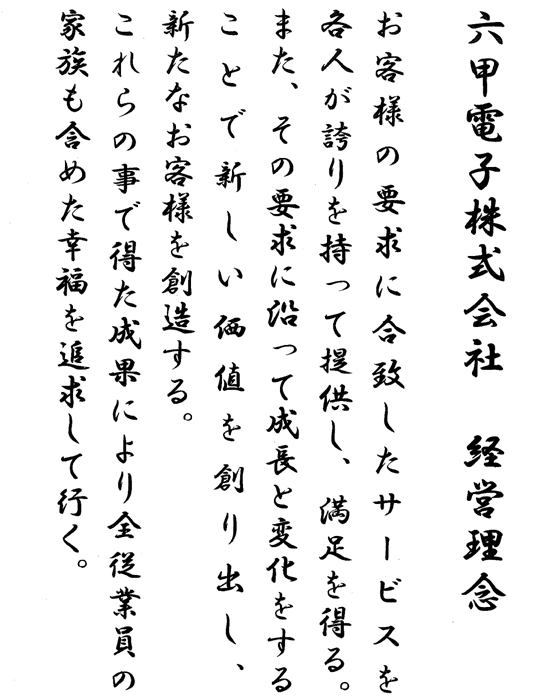 六甲電子株式会社　経営理念
お客様の要求に合致したサービスを
各人が誇りを持って提供し、満足を得る。
また、その要求に沿って成長と変化をする
ことで新しい価値を創り出し、
新たなお客様を創造する。
これらの事で得た成果により全従業員の
家族も含めた幸福を追求して行く。